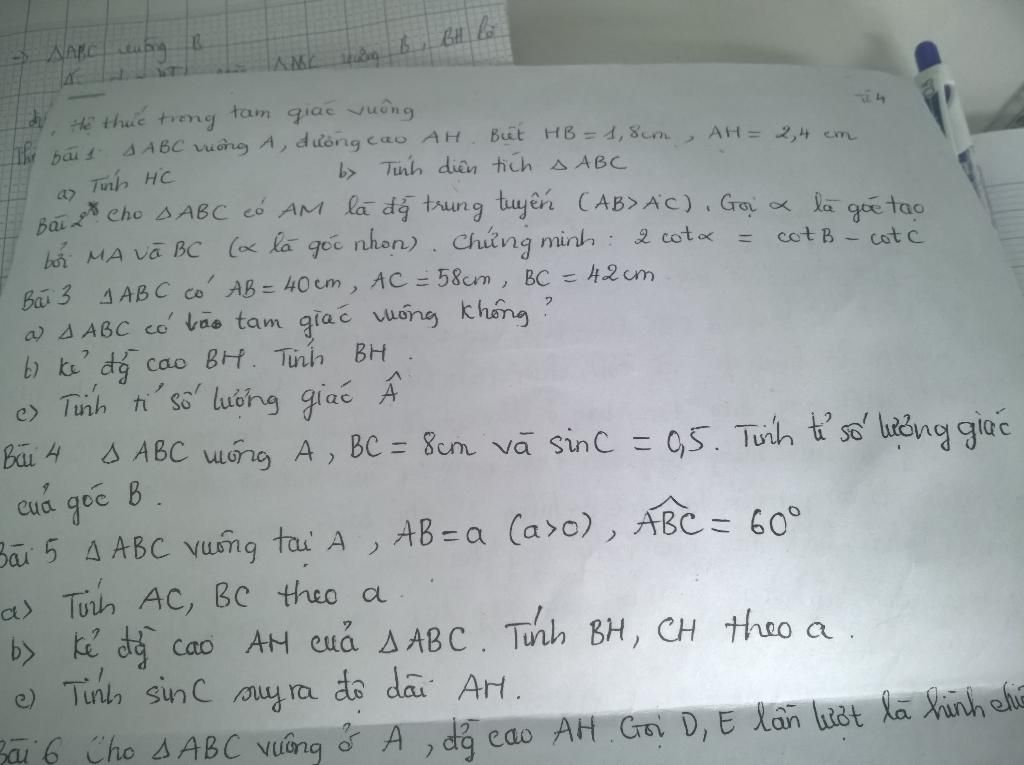 → ΔABC vuông B
ΔABC vuông B, BH là
Hê thức trong tam giác vuông
Bài 1. ΔABC vuông A, đường cao AH. Biết HB = 1,8cm, AH = 2,4 cm
a) Tính HC b) Tính diên tích ΔABC
Bài 2* Cho ΔABC có AM là đg̀ trung tuyến (AB>AC). Gọi α là góc tạo
bởi MA và BC (α là góc nhọn). Chứng minh: 2 cotα = cotB - cotC
Bài 3 ΔABC có AB = 40cm, AC = 58cm, BC = 42cm
a) ΔABC có tam giác vuông không?
b) Kẻ đg̀ cao BH. Tính BH.
c) Tính tỉ số lượng giác Â
Bài 4 ΔABC vuông A, BC = 8cm và sinC = 0,5. Tính tỉ số lượng giác
của góc B.
Bài 5 ΔABC vuông tại A, AB = a (a>0), ABC = 60°
a) Tính AC, BC theo a.
b) Kẻ đg̀ cao AH của ΔABC. Tính BH, CH theo a.
c) Tính sinC suy ra độ dài AH.
Bài 6 Cho ΔABC vuông ở A, đg̀ cao AH. Gọi D, E lần lượt là hình